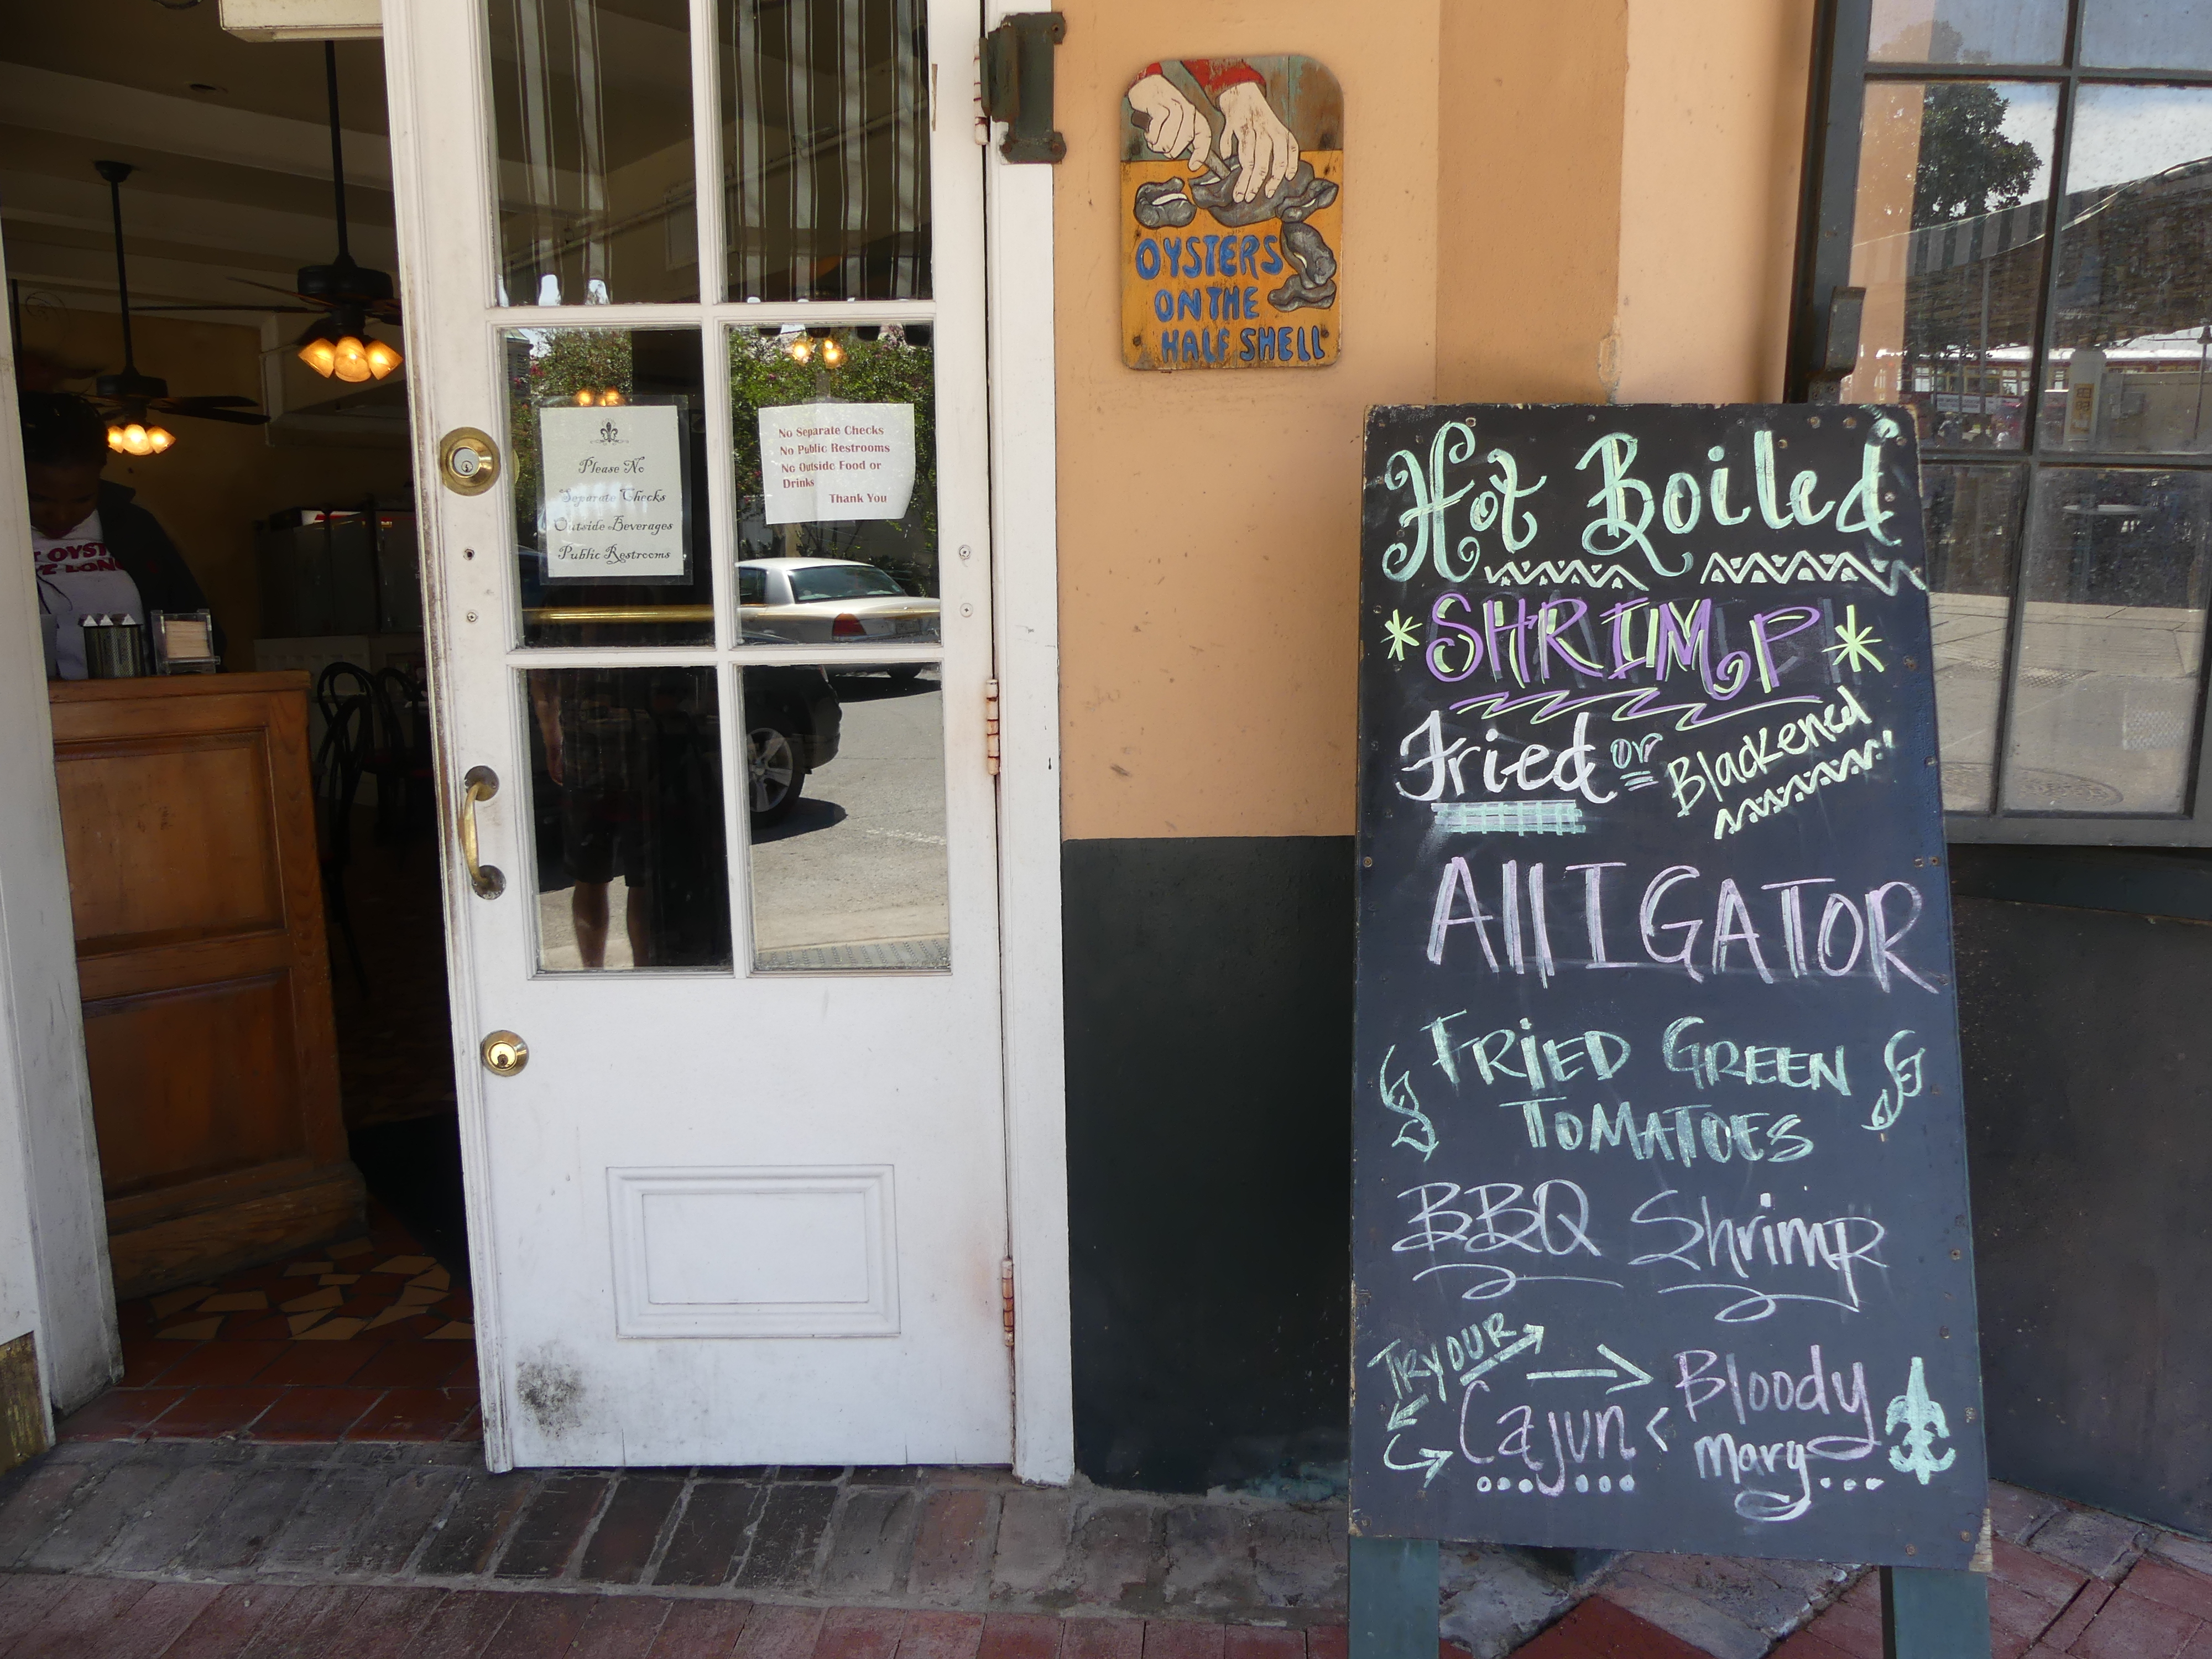 Please No
Separate Checks
Outside Beverages
Public Restrooms
No Separate Checks
No Public Restrooms
No Outside Food or
Drinks
Thank You
OYSTERS
ON THE
HALF SHELL
Hot Boiled
SHRIMP
Fried or Blackened
AllIGATOR
FRiED GREEN
TOMATOES
BBQ Shrimp
TRY OUR
Cajun Bloody
Mary...